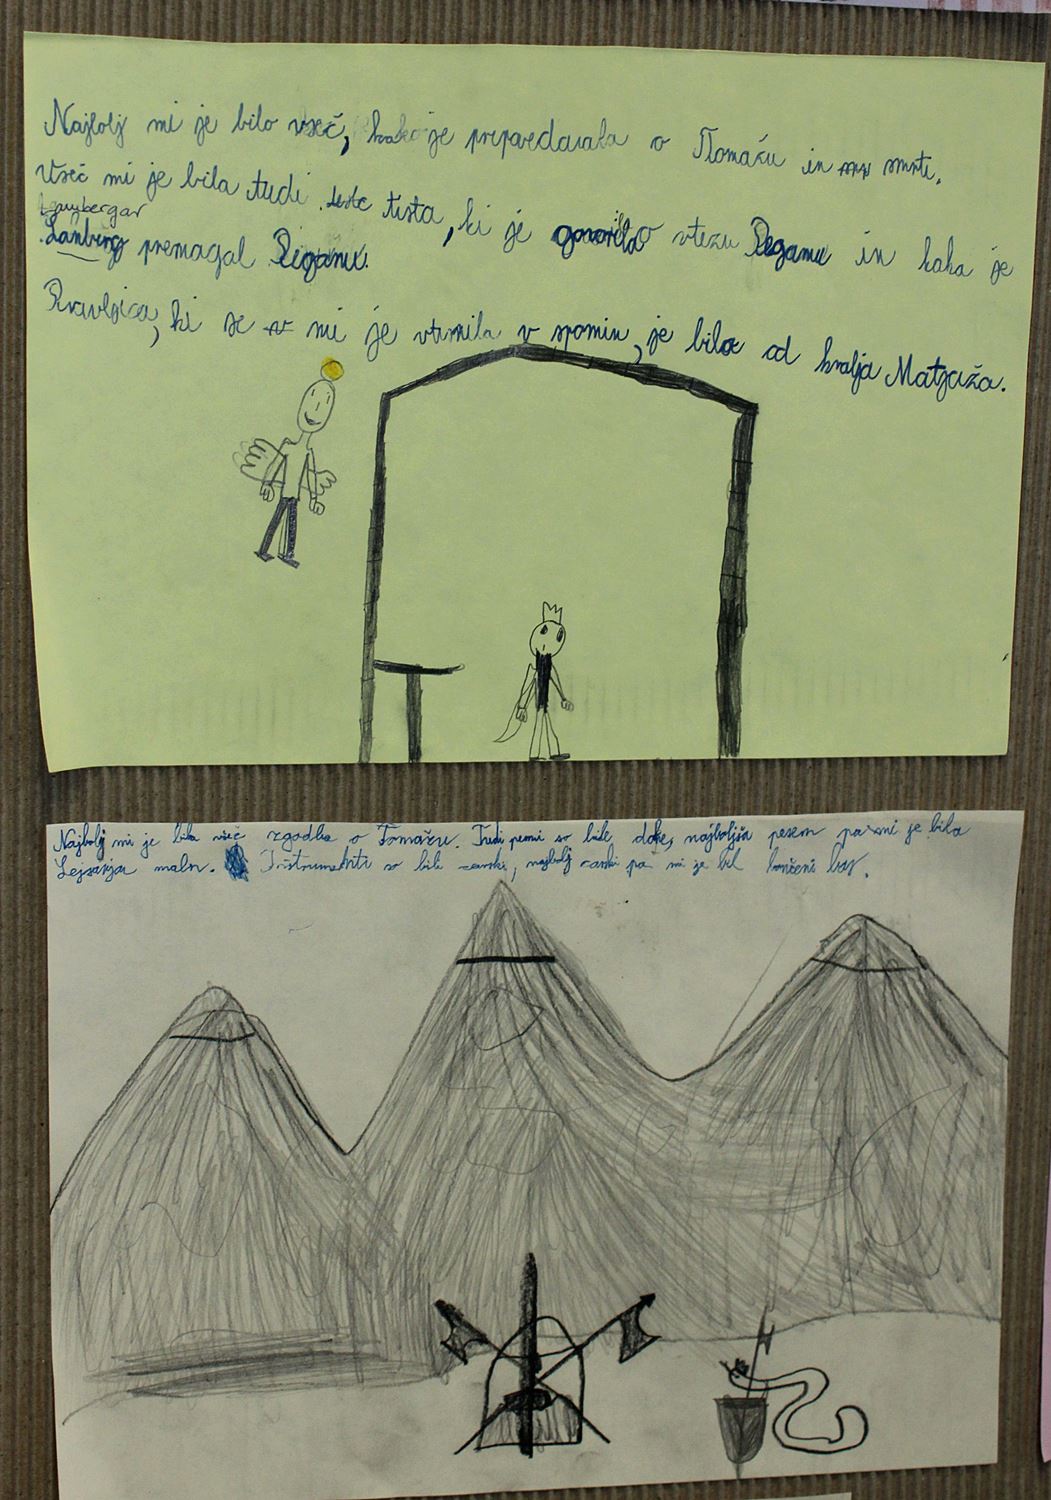 Najbolj mi je bilo všeč, kako je pripovedovala o Tomažu in smrti.
Všeč mi je bila tudi tista, ki je govorila o vitezu Peganu in kako je
Lambergar
Lamberg premagal Peganu.
Pravljica, ki se mi je vtisnila v spomin, je bila od kralja Matjaža.
Najbolj mi je bila všeč zgodba o Tomažu. Tudi pesmi so bile dobre, najboljša pesem pa mi je bila
maln. Instrumenti so bili carski, najbolj carski pa mi je bil lončeni bas.